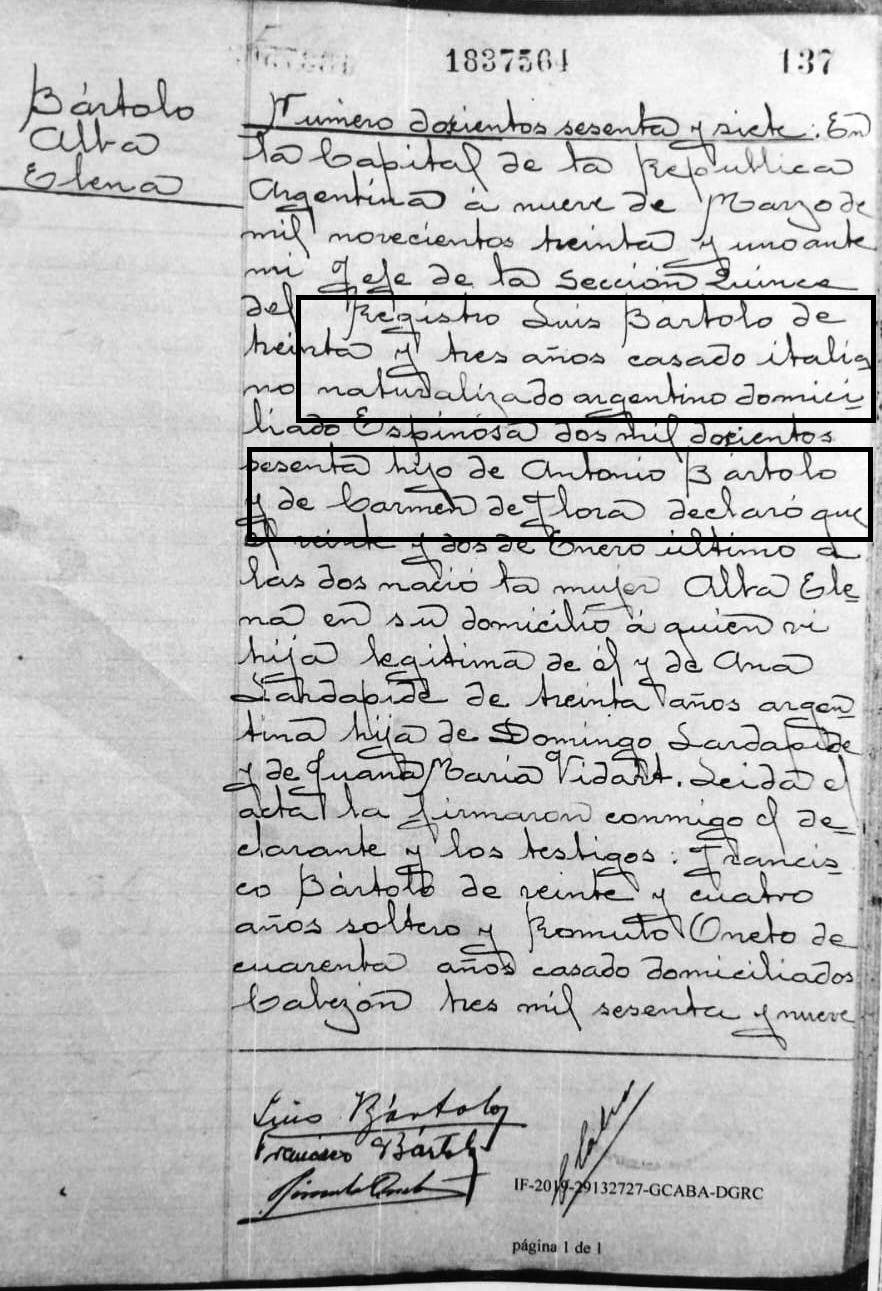 1837564
137
Bártolo
Alba
Elena
Numero doscientos sesenta y siete: En
la Capital de la Republica
Argentina á nueve de Marzo de
mil novecientos treinta y uno ante
mi Jefe de la Sección Quince
del Registro Luis Bártolo de
treinta y tres años casado italia
no naturalizado argentino domici-
liado Espinosa dos mil doscientos
sesenta hijo de Antonio Bártolo
y de Carmen de Flora declaró que
el veinte y dos de Enero último á
las dos nació la mujer Alba Ele-
na en su domicilio á quien vi
hija legitima de él y de Ana
Lardapide de treinta años argen
tina hija de Domingo Lardapide
y de Juana Maria Vidart. Leida el
acta la firmaron conmigo el de-
clarante y los testigos: Francis-
co Bártolo de veinte y cuatro
años soltero y Romulo Oneto de
cuarenta años casado domiciliados
Cabezón tres mil sesenta y nueve
Luis Bártolo
Francisco Bártolo
IF-2019-29132727-GCABA-DGRC
página 1 de 1